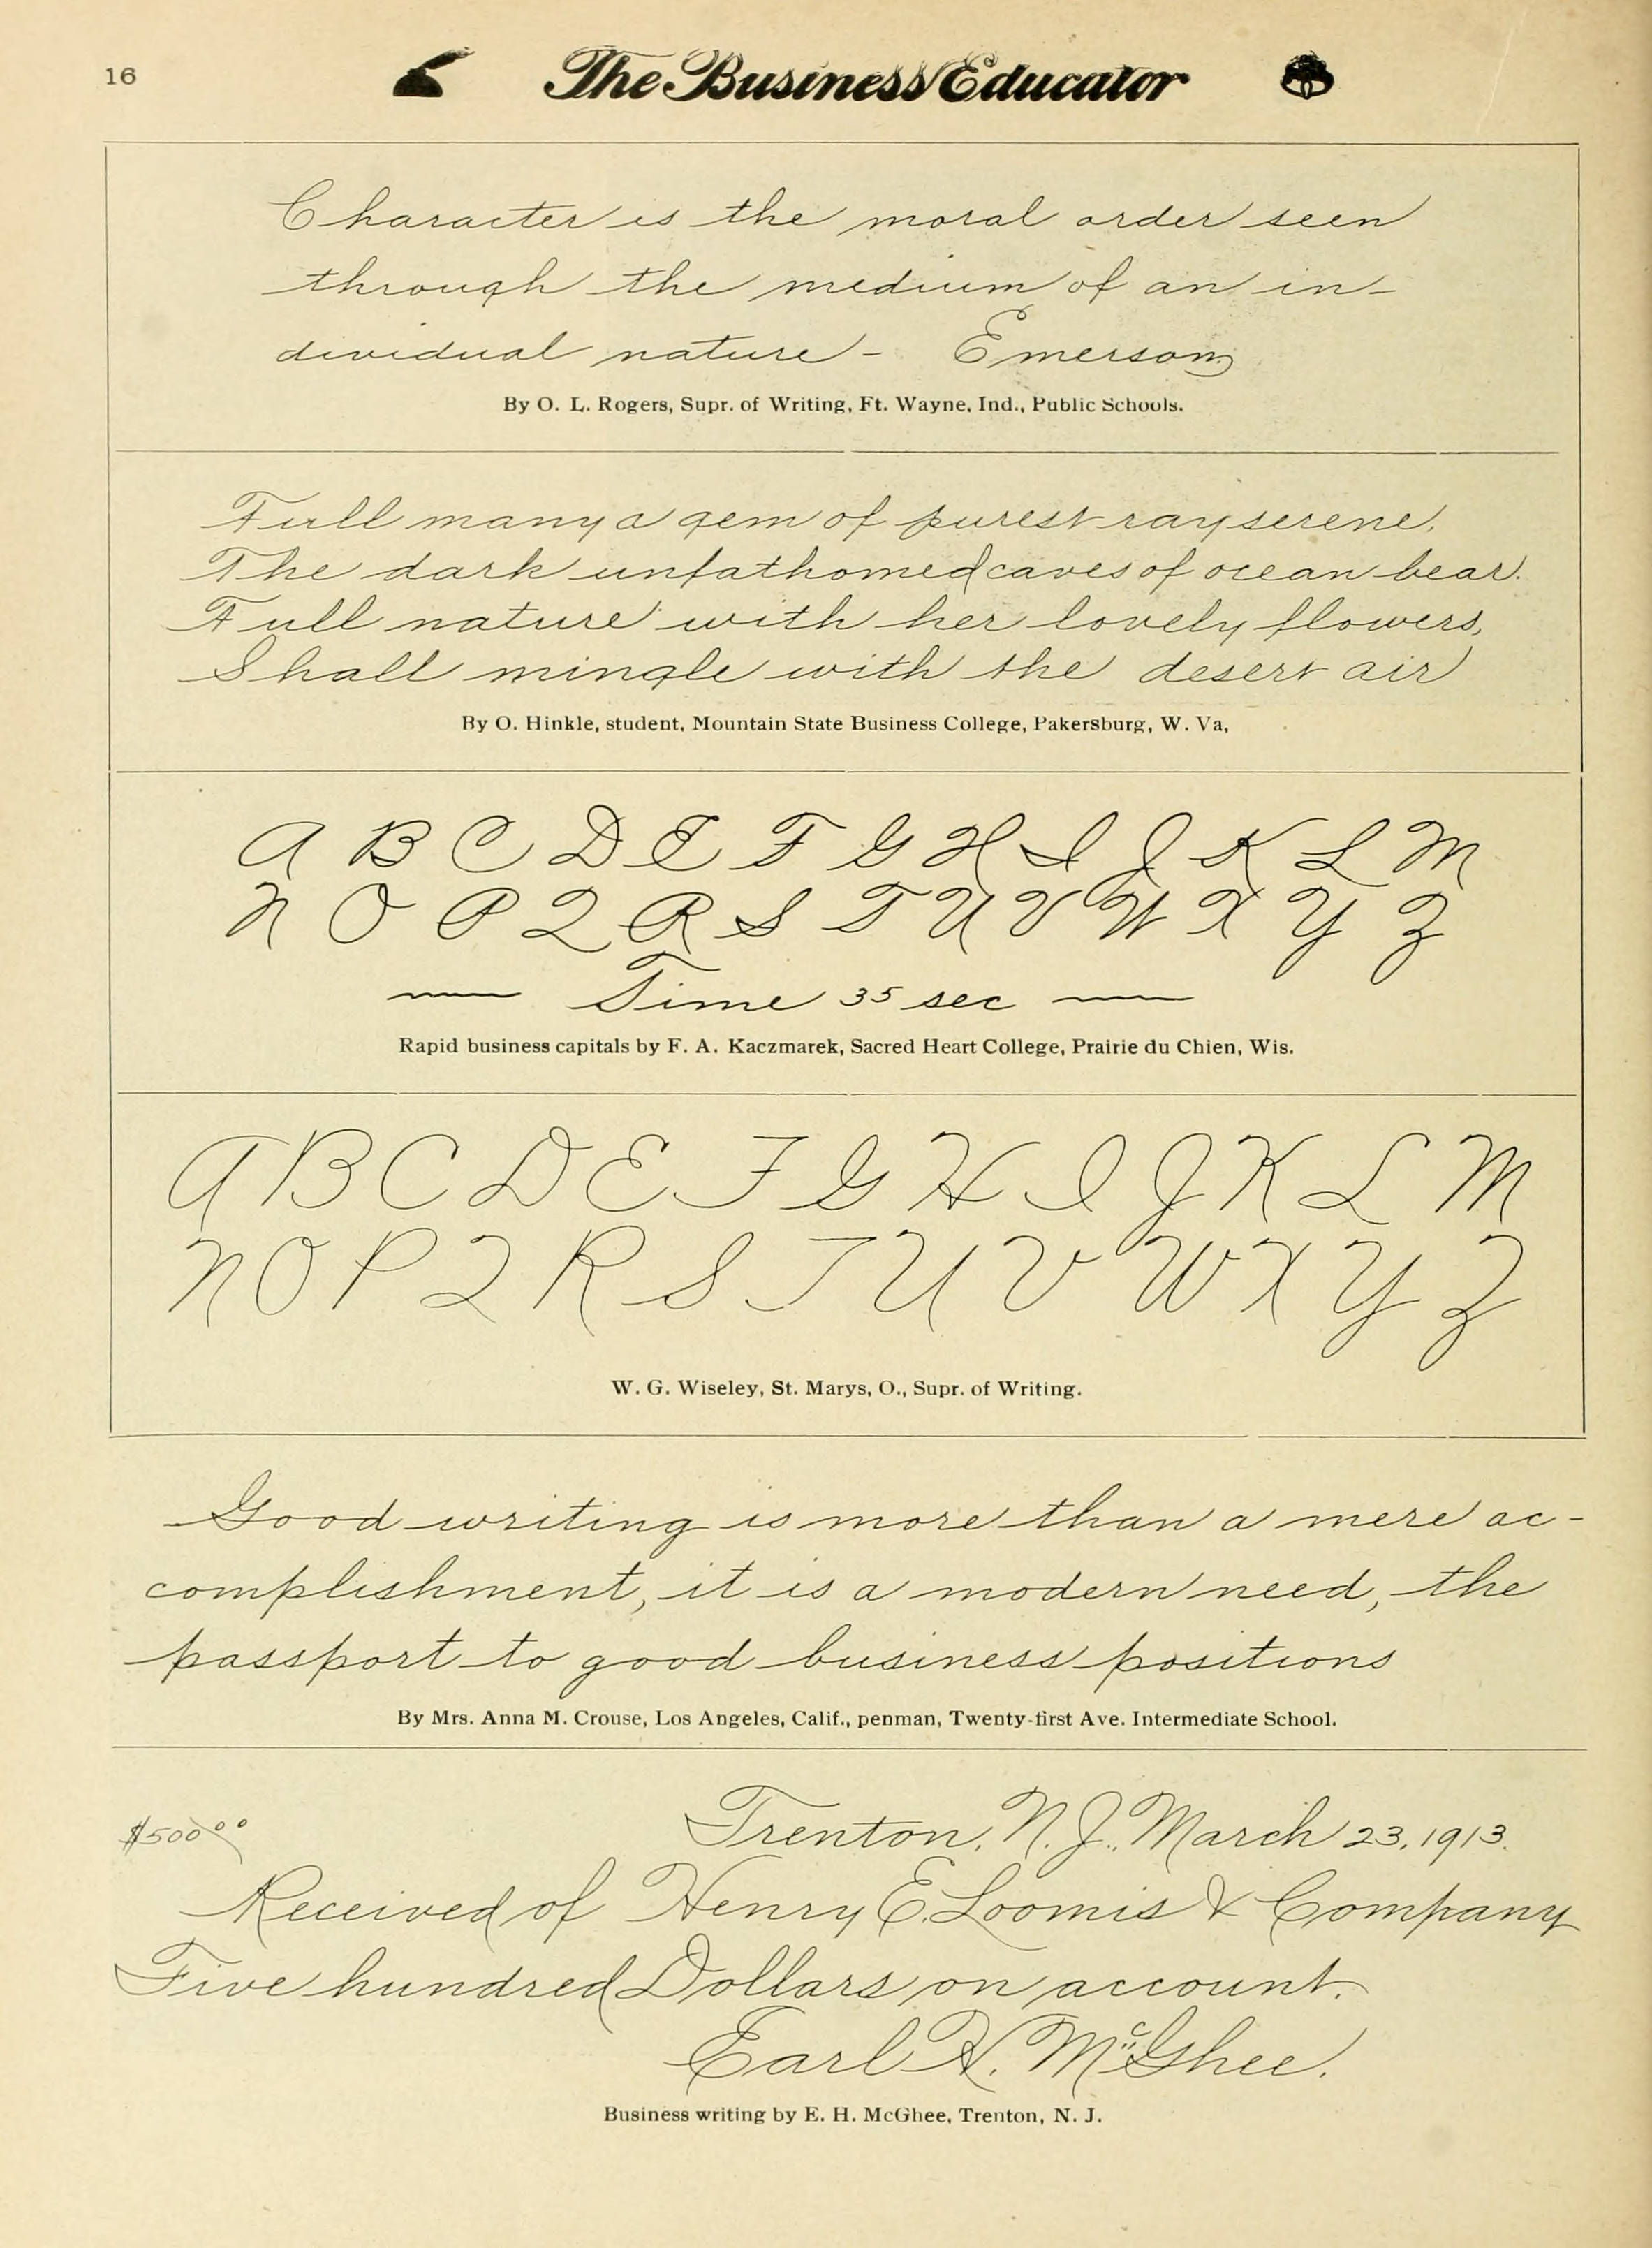 16
The Business Educator
Character is the moral order seen
through the medium of an in-
dividual nature - Emerson
By O. L. Rogers, Supr. of Writing, Ft. Wayne, Ind., Public Schools.
Full many a gem of purest ray serene,
The dark unfathomed caves of ocean bear.
Full nature with her lovely flowers,
Shall mingle with the desert air
By O. Hinkle, student, Mountain State Business College, Pakersburg, W. Va,
A B C D E F G H I J K L M
N O P Q R S T U V W X Y Z
Time 35 sec
Rapid business capitals by F. A. Kaczmarek, Sacred Heart College, Prairie du Chien, Wis.
A B C D E F G H I J K L M
N O P Q R S T U V W X Y Z
W. G. Wiseley, St. Marys, O., Supr. of Writing.
Good writing is more than a mere ac-
complishment, it is a modern need, the
passport to good business positions
By Mrs. Anna M. Crouse, Los Angeles, Calif., penman, Twenty-first Ave. Intermediate School.
$500.00 Trenton, N. J., March 23, 1913.
Received of Henry E. Loomis & Company
Five hundred Dollars on account.
Earl H. McGhee.
Business writing by E. H. McGhee, Trenton, N. J.